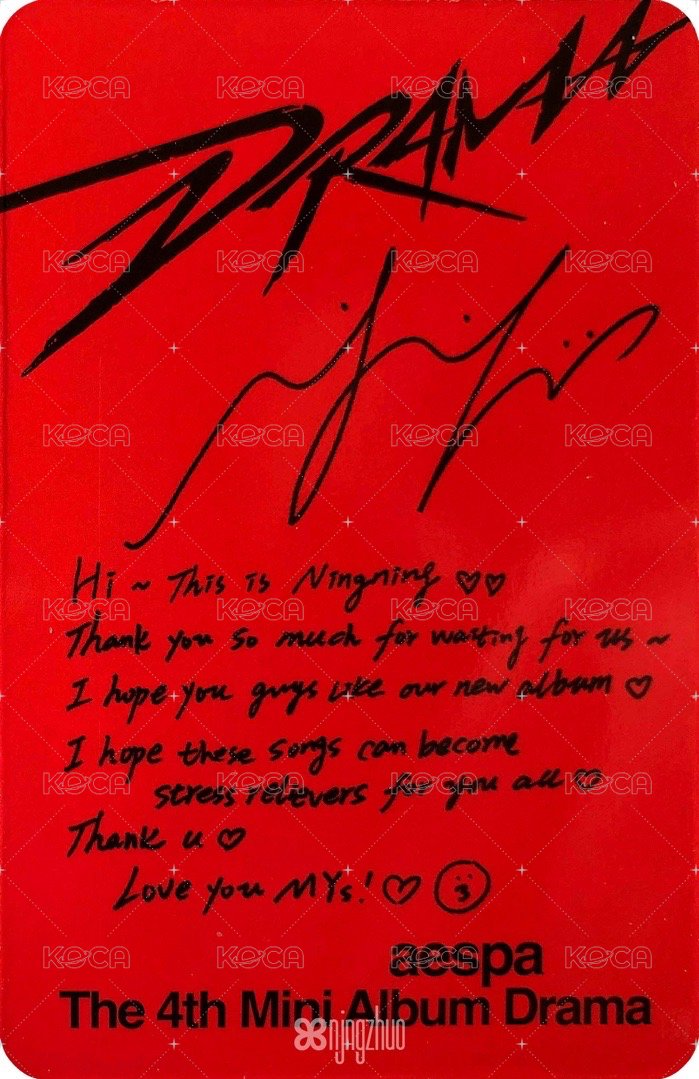 DRAMA
Hi ~ This is Ningning ♡♡
Thank you so much for waiting for us ~
I hope you guys like our new album ♡
I hope these songs can become
stress relievers for you all ♡
Thank u ♡
Love you MYs! ♡
aespa
The 4th Mini Album Drama
KOCA
njagzhuo